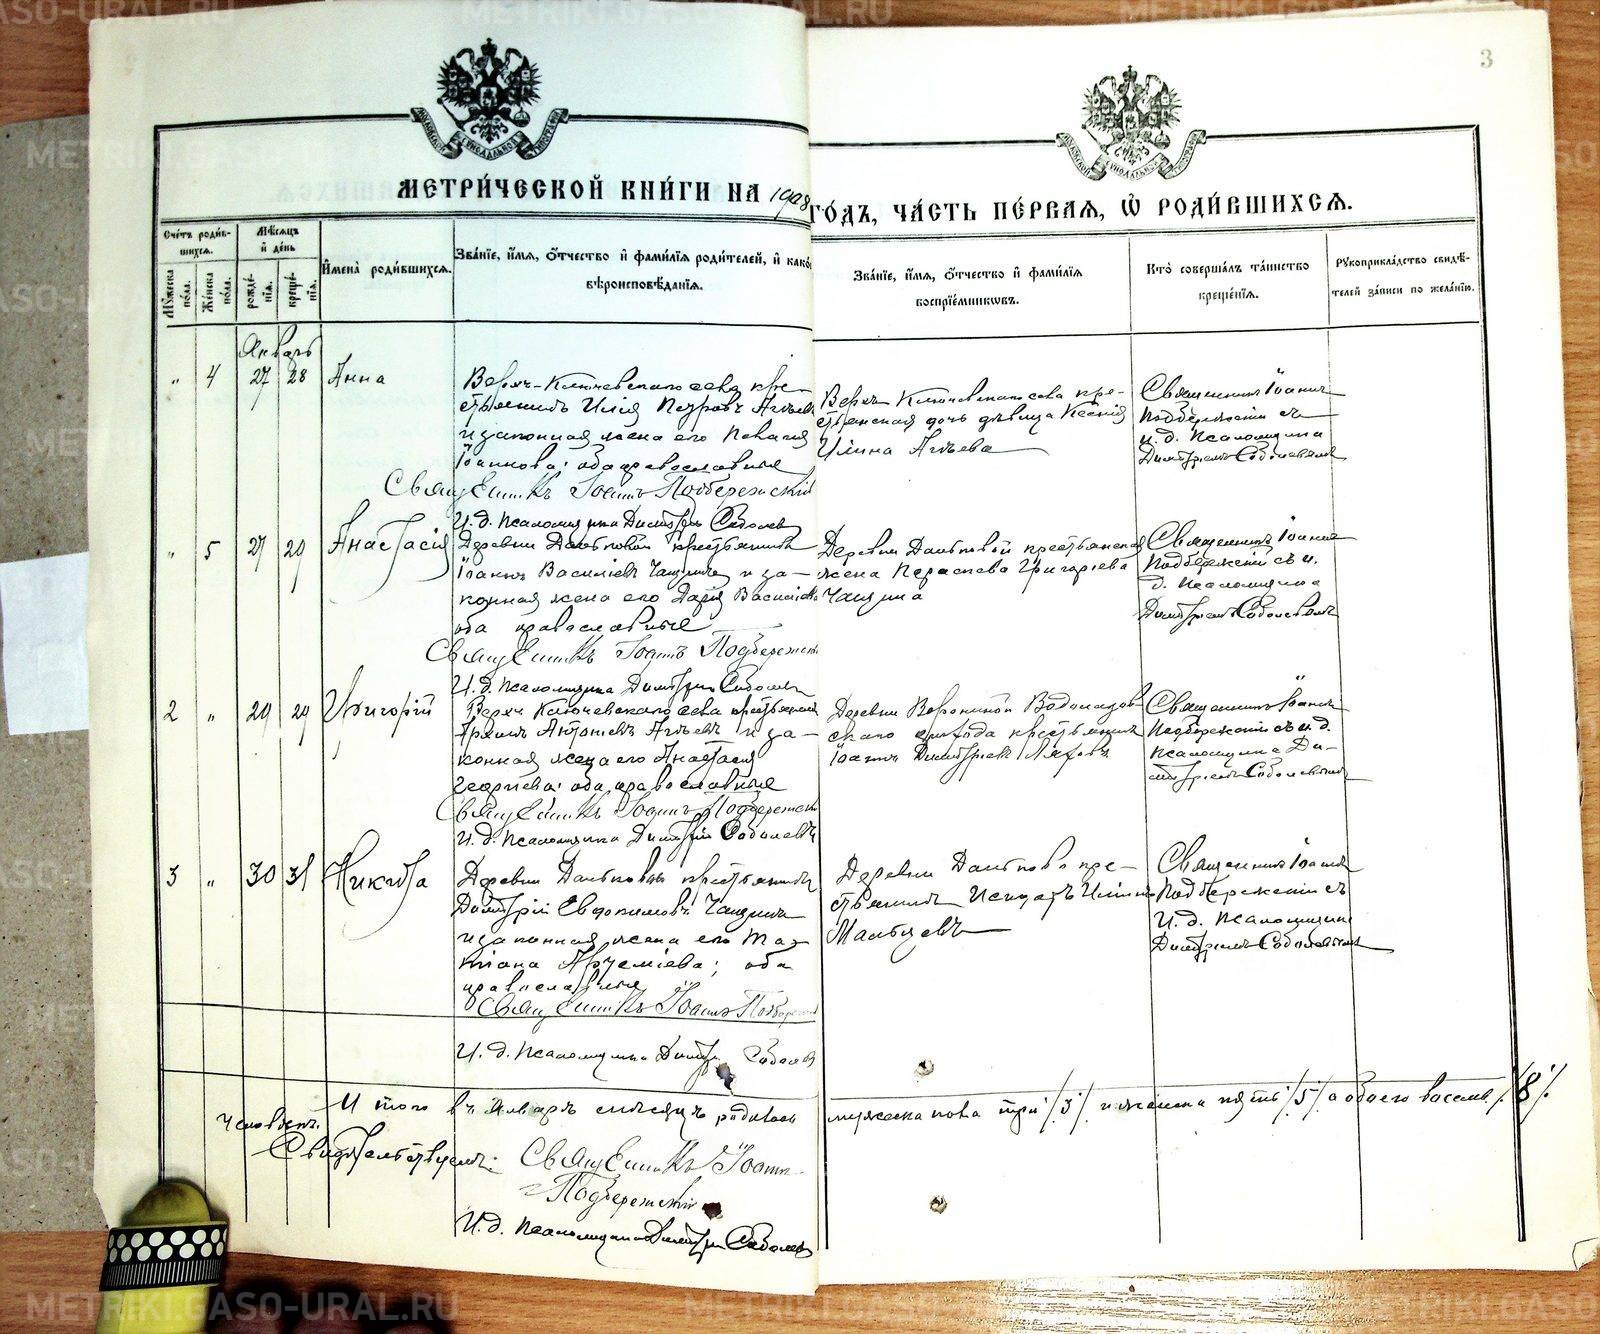 3
МЕТРИ́ЧЕСКОЙ КНИ́ГИ НА 1908 ГО́ДЪ, ЧА́СТЬ ПЕ́РВАЯ, Ѡ РОДИ́ВШИХСѦ.
Сче́тъ роди́вшихся.
Мѣ́сяцъ и́ де́нь
И҆мена̀ роди́вшихся.
Зва́нїе, и҆́мя, о҆́тчество и҆ фами́лїя роди́телей, и҆ како
вѣроисповѣ́данїя.
Зва́нїе, и҆́мя, о҆́тчество и҆ фами́лїя
воспрїе́мникѡвъ.
Кто̀ соверша́лъ та́инство
креще́нїя.
Рꙋкоприкла́дство свидѣ́-
телей за́писи по жела́нїю.
Мꙋ́жеска по́ла.
Же́нска по́ла.
рожде́нїя.
креще́нїя.
Январь
" 4 27 28 Анна
Верхъ-Ключевскаго села кре-
стьянинъ Илія Петровъ Агѣевъ
и законная жена его Пелагія
Іоаннова; оба православные
Священникъ Іоаннъ Подбережскій
И. д. Псаломщика Димитрій Соболевъ
Верхъ Ключевскаго села кре-
стьянская дочь дѣвица Ксенія
Илина Агѣева
Священникъ Іоаннъ
Подбережскій съ
и. д. Псаломщика
Димитріемъ Соболевымъ
" 5 27 29 Анастасія
Деревни Далтковой крестьянинъ
Іоаннъ Василіевъ Чащинъ и за-
конная жена его Дарія Василіева
оба православные
Священникъ Іоаннъ Подбережскій
И. д. Псаломщика Димитрій Соболевъ
жена Параскева Григоріева
Чащина
Священникъ Іоаннъ
Подбережскій съ и.
д. Псаломщика
Димитріемъ Соболевымъ
2 " 29 29 Григорій
Верхъ Ключевскаго села крестьянинъ
конная жена его Анастасія
Георгіева; оба православные
Священникъ Іоаннъ Подбережскій
И. д. Псаломщика Димитрій Соболевъ
Деревни Ворониной
крестьянинъ
Іоаннъ Димитріевъ
Священникъ Іоаннъ
Подбережскій съ и. д.
Псаломщика Ди-
митріемъ Соболевымъ
3 " 30 31 Никита
крестьянинъ
Димитрій Евдокимовъ Чащинъ
и законная жена его Та-
тіана Артеміева; оба
православные
Священникъ Іоаннъ Подбережскій
И. д. Псаломщика Димитрій Соболевъ
кре-
стьянинъ
Мальцевъ
Священникъ Іоаннъ
Подбережскій съ
И. д. Псаломщика
Димитріемъ Соболевымъ
И того въ Январѣ мѣсяцѣ родилось мужеска пола три /3/ и женска пять /5/ а обоего восемь /8/
человѣкъ.
Свидѣтельствуемъ: Священникъ Іоаннъ
Подбережскій
И. д. Псаломщика Димитрій Соболевъ
METRIKI.GASO-URAL.RU